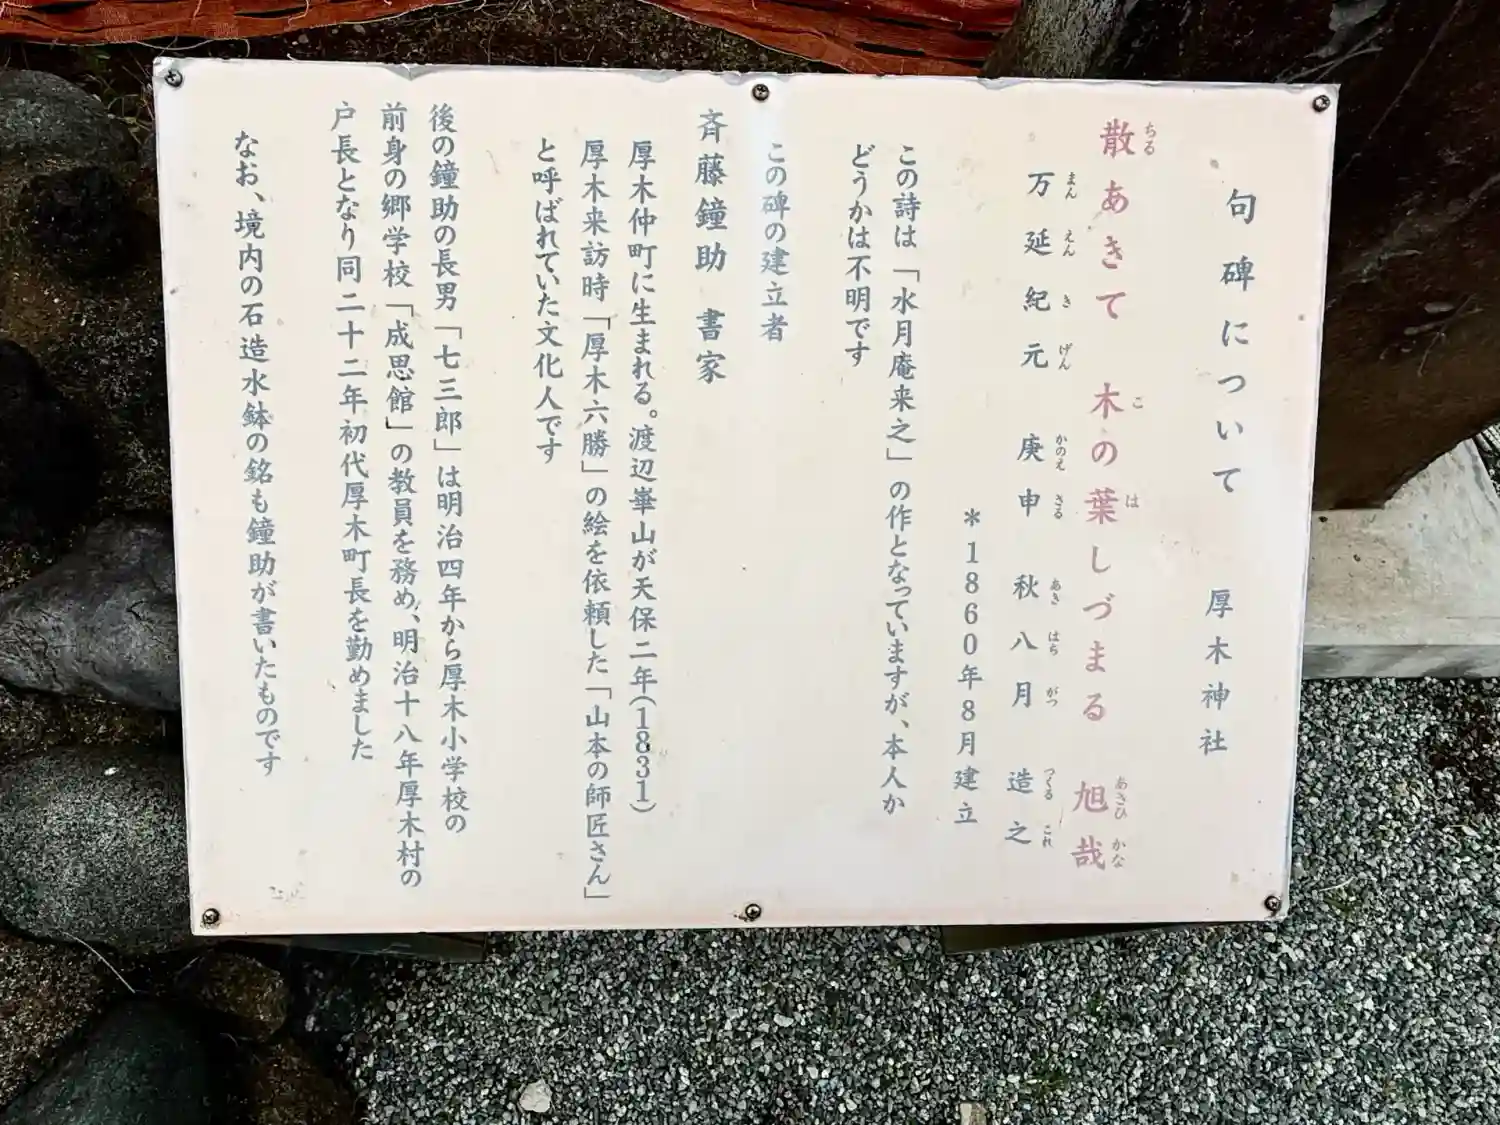 句碑について　厚木神社
散あきて　木の葉しづまる　旭哉
ちる　こ　は　あさひ　かな
万延紀元　庚申　秋八月　造之
まん　えん　き　げん　かのえ　さる　あき　はち　がつ　つくる　これ
＊1860年8月建立
この詩は「水月庵来之」の作となっていますが、本人か
どうかは不明です
この碑の建立者
斉藤鐘助　書家
厚木仲町に生まれる。渡辺崋山が天保二年(1831)
厚木来訪時「厚木六勝」の絵を依頼した「山本の師匠さん」
と呼ばれていた文化人です
後の鐘助の長男「七三郎」は明治四年から厚木小学校の
前身の郷学校「成思館」の教員を務め、明治十八年厚木村の
戸長となり同二十二年初代厚木町長を勤めました
なお、境内の石造水鉢の銘も鐘助が書いたものです